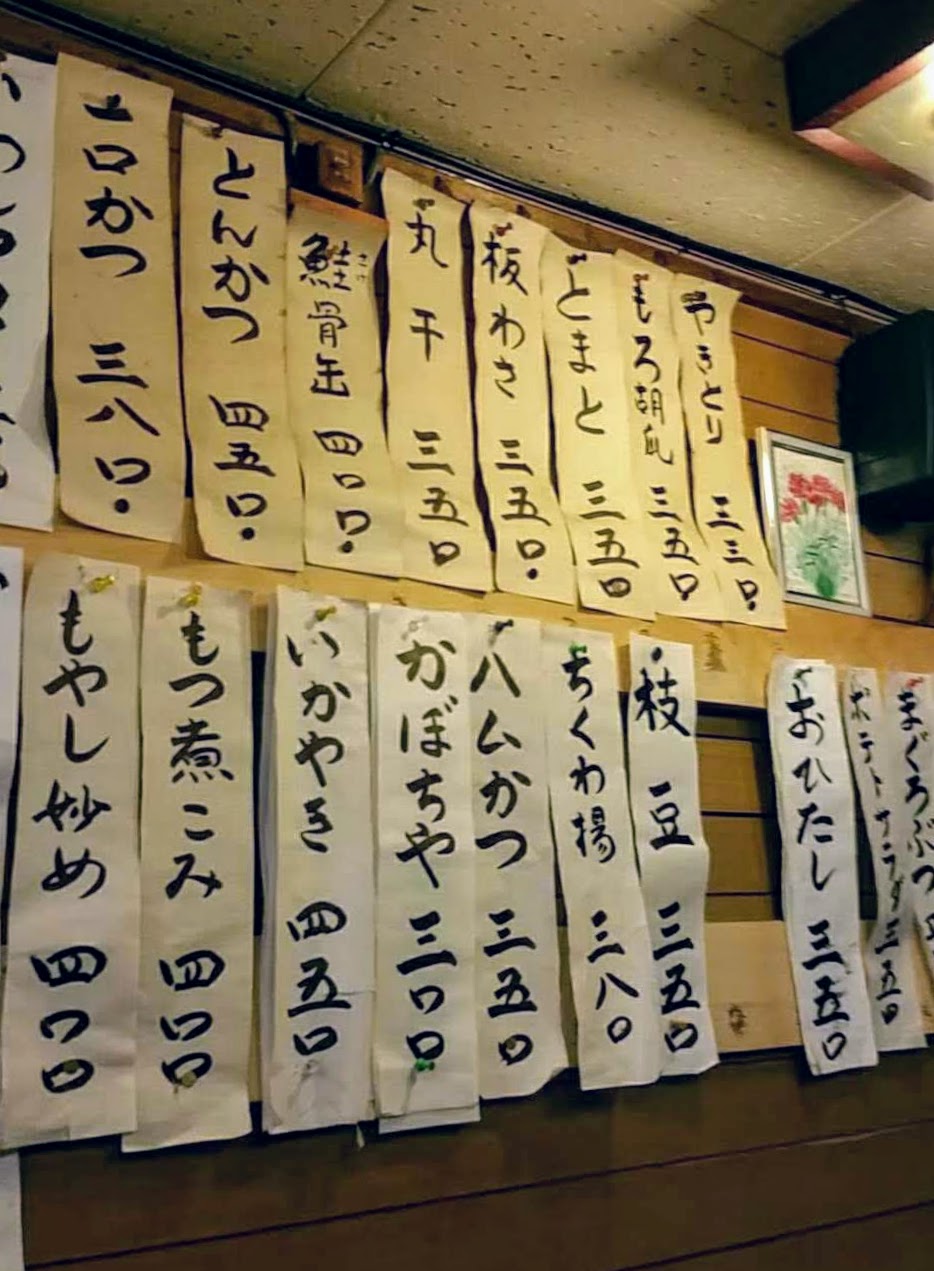 やきとり 三三〇
もろ胡瓜 三五〇
とまと 三五〇
板わさ 三五〇
丸干 三五〇
鮭骨缶 四〇〇
さけ
とんかつ 四五〇
一口かつ 三八〇
まぐろぶつ
ポテトサラダ 三五〇
おひたし 三五〇
枝豆 三五〇
ちくわ揚 三八〇
ハムかつ 三五〇
かぼちゃ 三〇〇
いかやき 四五〇
もつ煮こみ 四〇〇
もやし炒め 四〇〇